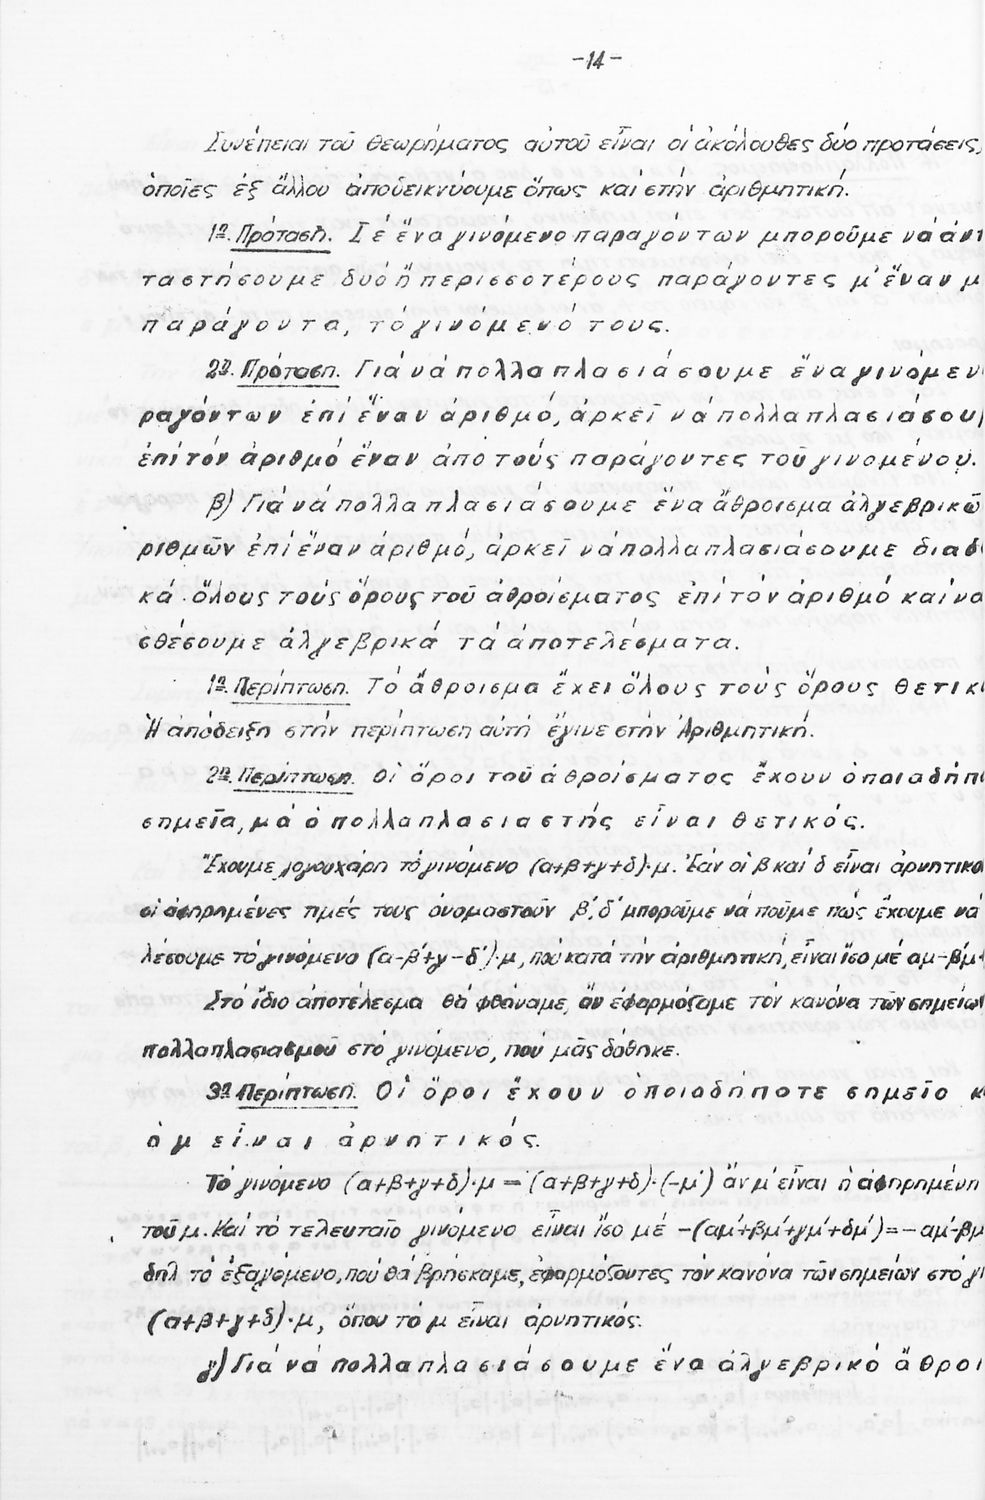 -14-
Συνέπειαι τοῦ θεωρήματος αὐτοῦ εἶναι οἱ ἀκόλουθες δύο προτάσεις,
ὁποῖες ἐξ ἄλλου ἀποδεικνύουμε ὅπως καί στήν ἀριθμητική.
1η. Πρόταση. Σέ ἕνα γινόμενο παραγόντων μποροῦμε νά ἀντι
ταστήσουμε δυό ἤ περισσοτέρους παράγοντες μ' ἕναν μ
παράγοντα, τό γινόμενό τους.
2η. Πρόταση. Γιά νά πολλαπλασιάσουμε ἕνα γινόμεν
ραγόντων ἐπί ἕναν ἀριθμό, ἀρκεῖ νά πολλαπλασιάσου
ἐπί τόν ἀριθμό ἕναν ἀπό τούς παράγοντες τοῦ γινομένου.
β) Γιά νά πολλαπλασιάσουμε ἕνα ἄθροισμα ἀλγεβρικῶ
ριθμῶν ἐπί ἕναν ἀριθμό, ἀρκεῖ νά πολλαπλασιάσουμε διαδ
κά ὅλους τούς ὅρους τοῦ ἀθροίσματος ἐπί τόν ἀριθμό καί να
σθέσουμε ἀλγεβρικά τά ἀποτελέσματα.
1η. Περίπτωση. Τό ἄθροισμα ἔχει ὅλους τούς ὅρους θετικ
Ἡ ἀπόδειξη στήν περίπτωση αὐτή ἔγινε στήν Ἀριθμητική.
2η. Περίπτωση. Οἱ ὅροι τοῦ ἀθροίσματος ἔχουν ὁποιαδήπ
σημεῖα, μά ὁ πολλαπλασιαστής εἶναι θετικός.
Ἔχουμε λόγου χάρη τό γινόμενο (α+β+γ+δ)·μ. Ἐάν οἱ β καί δ εἶναι ἀρνητικο
οἱ ἀφηρημένες τιμές τους ὀνομαστοῦν β', δ' μποροῦμε νά ποῦμε πώς ἔχουμε νά
λέσουμε τό γινόμενο (α-β'+γ-δ')·μ, πού κατά τήν ἀριθμητική, εἶναι ἴσο μέ αμ-β'μ+
Στό ἴδιο ἀποτέλεσμα θά φθάναμε, ἄν ἐφαρμόζαμε τόν κανόνα τῶν σημείων
πολλαπλασιασμοῦ στό γινόμενο, πού μᾶς δόθηκε.
3η. Περίπτωση. Οἱ ὅροι ἔχουν ὁποιαδήποτε σημεῖο κ
ὁ μ εἶναι ἀρνητικός.
Τό γινόμενο (α+β+γ+δ)·μ = (α+β+γ+δ)·(-μ') ἄν μ' εἶναι ἡ ἀφηρημένη
τοῦ μ. Καί τό τελευταῖο γινόμενο εἶναι ἴσο μέ -(αμ'+βμ'+γμ'+δμ')=-αμ'-βμ
δηλ τό ἐξαγόμενο, πού θά βρήσκαμε, ἐφαρμόζοντες τόν κανόνα τῶν σημείων στό γι
(α+β+γ+δ)·μ, ὅπου τό μ εἶναι ἀρνητικός.
γ) Γιά νά πολλαπλασιάσουμε ἕνα ἀλγεβρικό ἄθροι